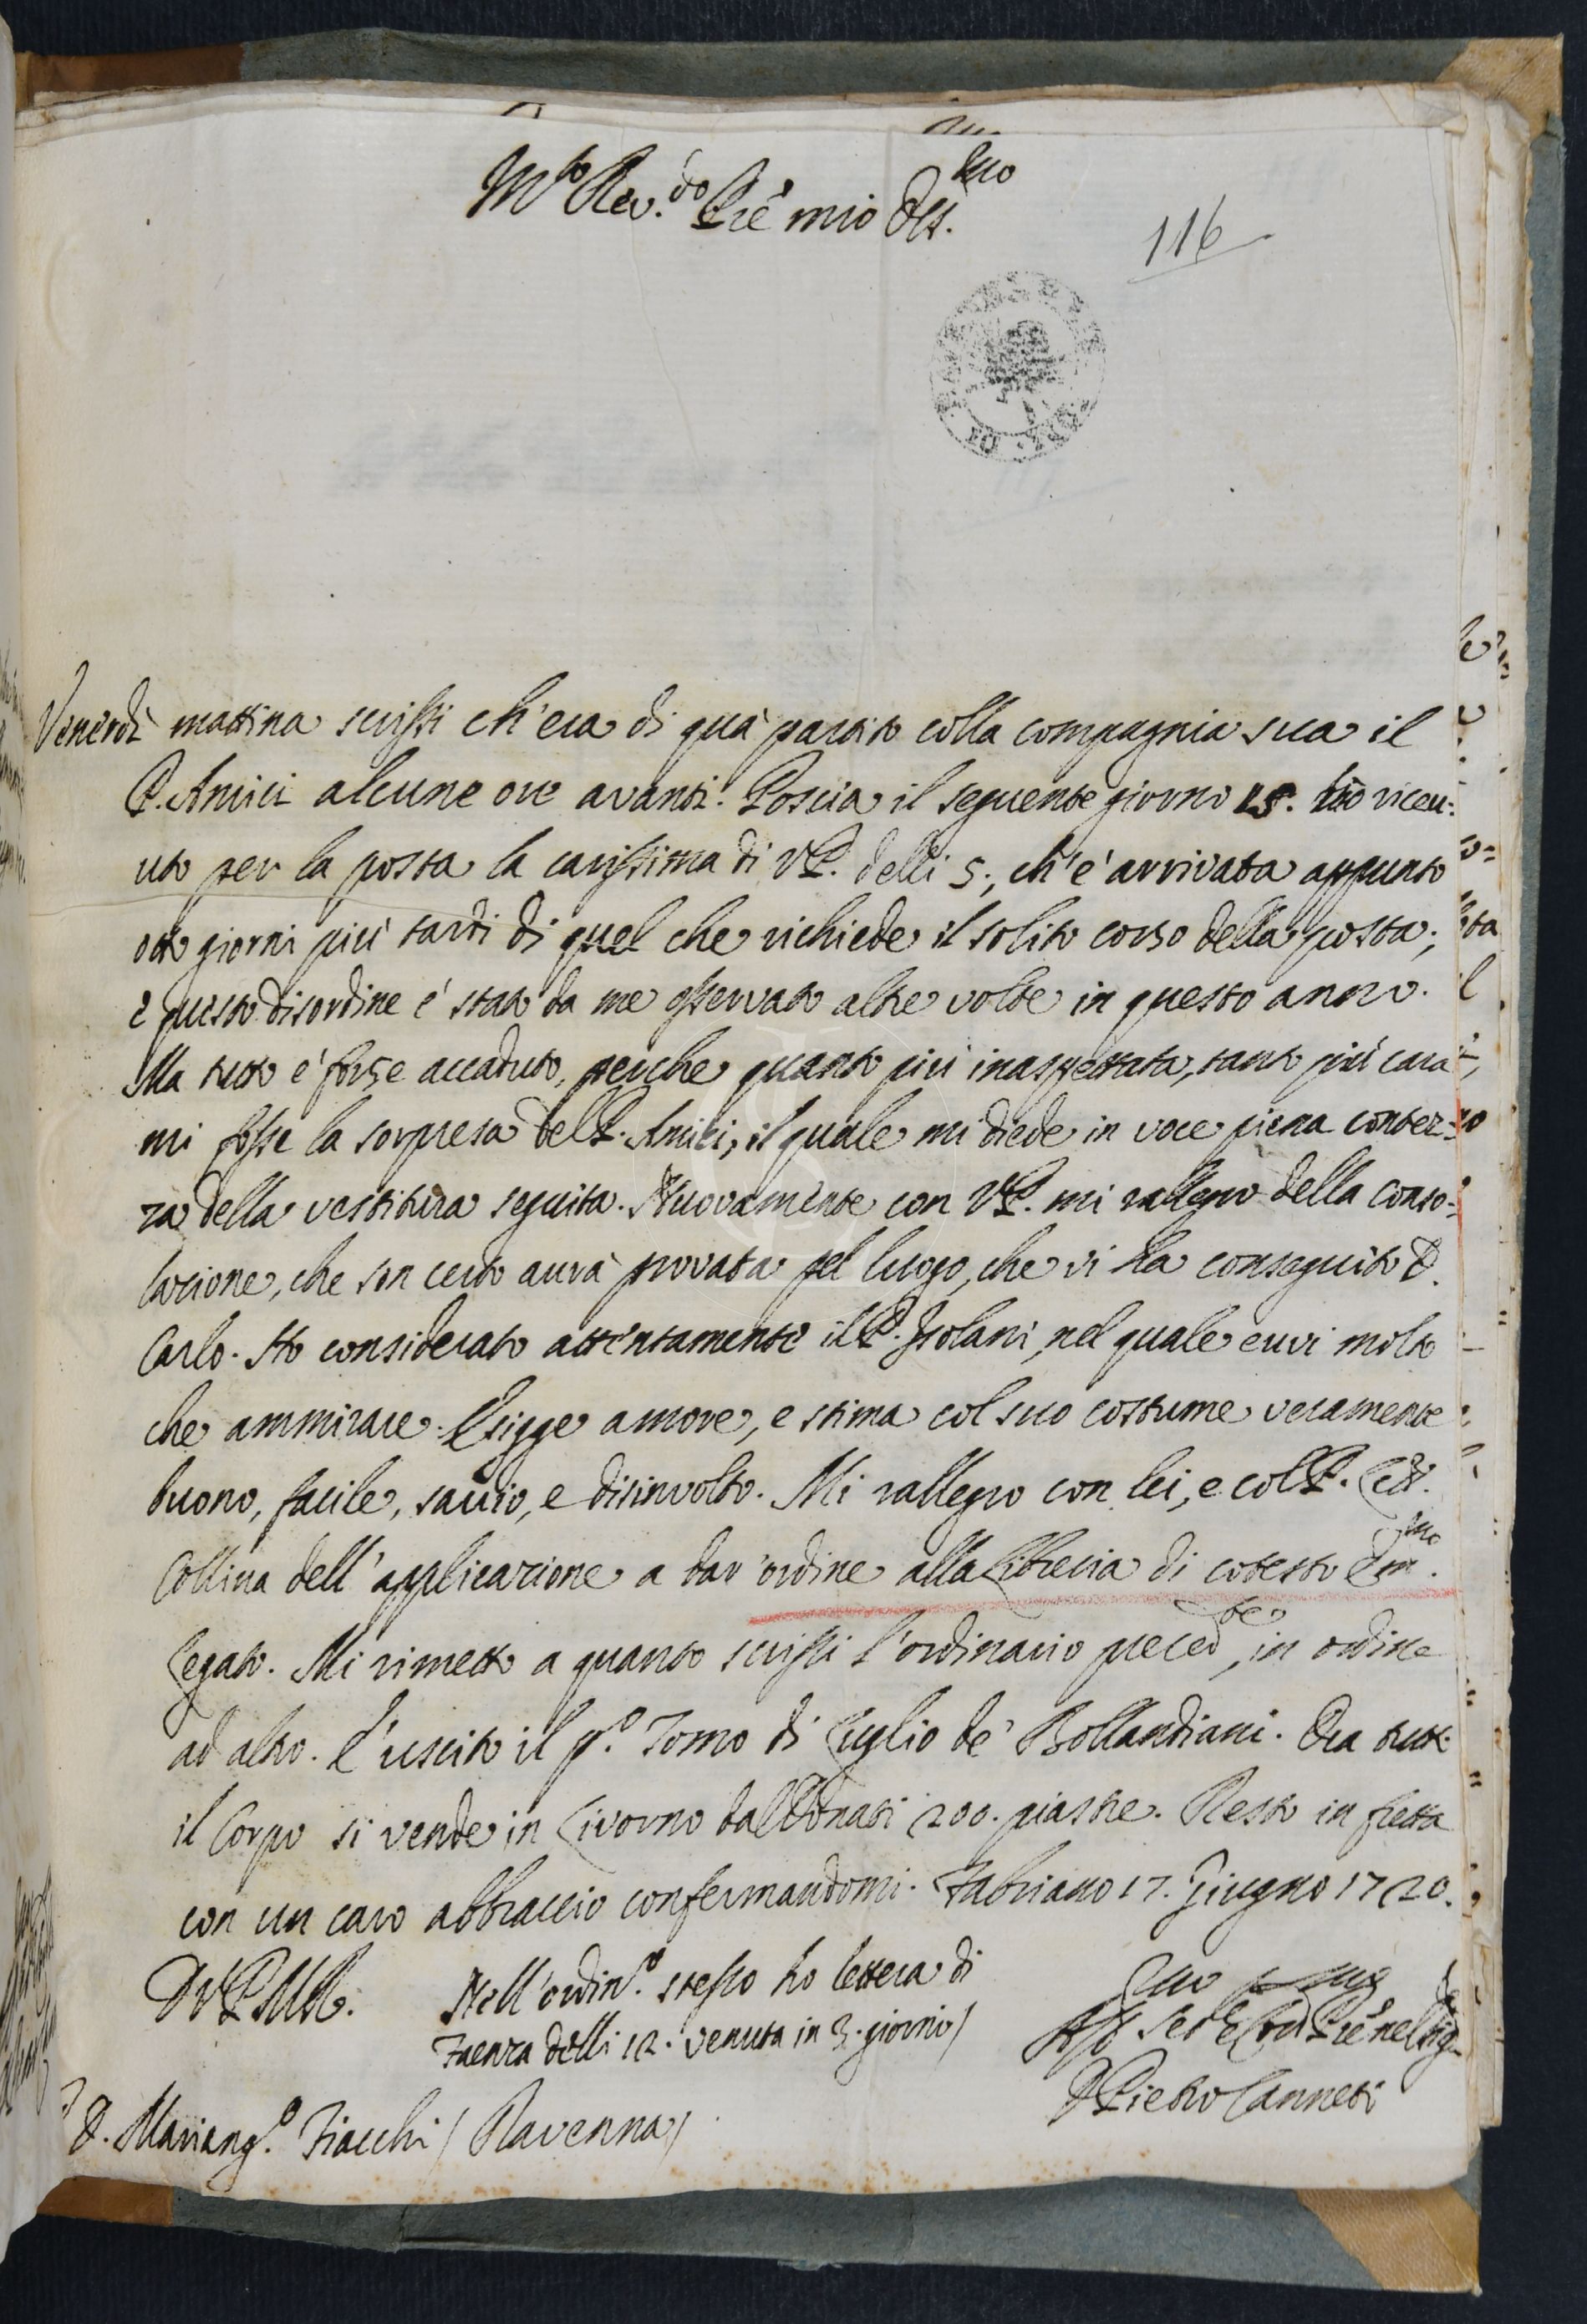 M.to Rev.do Prè mio Oss.mo
116
Venerdì mattina scrissi ch'era di quà partito colla compagnia sua il
P. Amici alcune ore avanti. Poscia il seguente giorno 15. hò riceu:
uto per la posta la carissima di V.P. delli 5., ch'è arrivata appunto
otto giorni più tardi di quel che richiede il solito corso della posta;
e questo disordine è stato da me osservato altre volte in questo anno.
Ma tutto è forse accaduto, perche quanto più inaspettata, tanto più cara
mi fosse la sorpresa del P. Amici, il quale mi diede in voce piena contez:
za della vestitura seguita. Nuovamente con V.P. mi rallegro della conso:
lazione, che son certo aurà provata pel luogo, che vi ha conseguito D.
Carlo. Ho considerato attentamente il P. Isolani, nel quale euvi molto
che ammirare. Esigge amore, e stima col suo costume veramente
buono, facile, sauio, e disinvolto. Mi rallegro con lei, e col P. Lett.
Collina dell'applicazione a dar'ordine alla Libreria di cotesto Em.mo
Legato. Mi rimetto a quanto scrissi l'ordinario preced.te, in ordine
ad altro. È uscito il p.o Tomo di Luglio de' Bollandiani. Ora tutt:
il Corpo si vende in Livorno dal Donati 200. piastre. Resto in fretta
con un caro abbraccio confermandomi. Fabriano 17. Giugno 1720.
D.V.P.M.R.
Nell'ordin.o stesso ho lettera di
Faenza delli 12. venuta in 3. giorni/
D. Pietro Canneti
D. Mariang.o Fiacchi / Ravenna/